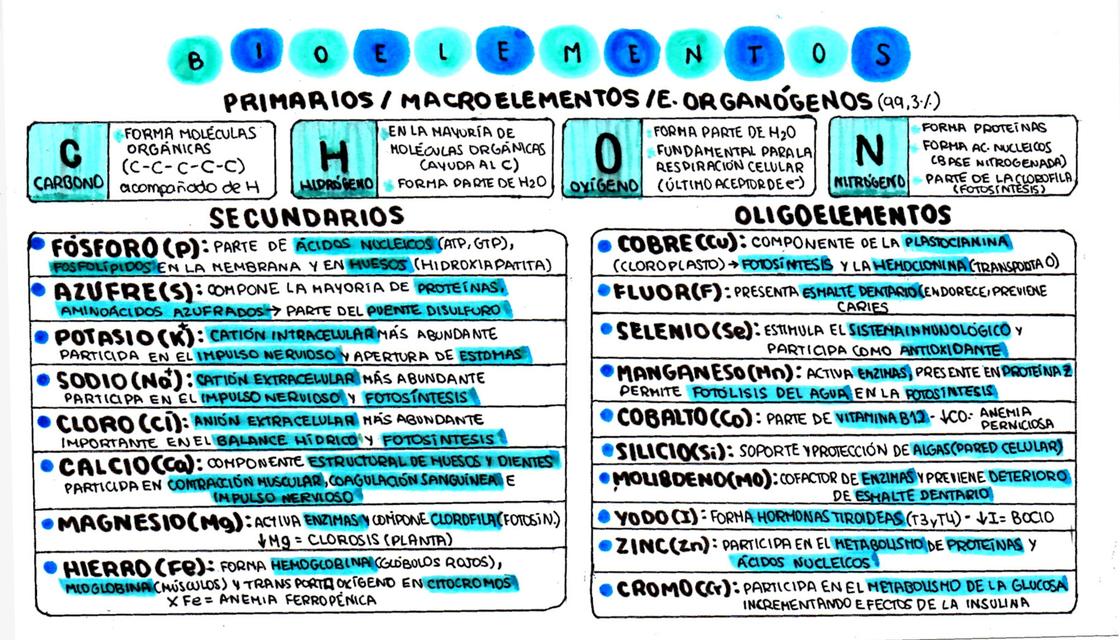 BIOELEMENTOS
PRIMARIOS / MACROELEMENTOS / E. ORGANÓGENOS (99,3%)
C
CARBONO
FORMA MOLÉCULAS
ORGÁNICAS
(C-C-C-C-C)
acompañado de H
H
HIDRÓGENO
EN LA MAYORÍA DE
MOLÉCULAS ORGÁNICAS
(AYUDA AL C)
FORMA PARTE DE H2O
O
OXÍGENO
FORMA PARTE DE H2O
FUNDAMENTAL PARA LA
RESPIRACIÓN CELULAR
(ÚLTIMO ACEPTOR DE e-)
N
NITRÓGENO
FORMA PROTEÍNAS
FORMA AC. NUCLEICOS
(BASE NITROGENADA)
PARTE DE LA CLOROFILA
(FOTOSÍNTESIS)
SECUNDARIOS
FÓSFORO (P): PARTE DE ÁCIDOS NUCLEICOS (ATP, GTP),
FOSFOLÍPIDOS EN LA MEMBRANA Y EN HUESOS (HIDROXIAPATITA)
AZUFRE (S): COMPONE LA MAYORIA DE PROTEÍNAS,
AMINOÁCIDOS AZUFRADOS → PARTE DEL PUENTE DISULFURO
POTASIO (K+): CATIÓN INTRACELULAR MÁS ABUNDANTE
PARTICIPA EN EL IMPULSO NERVIOSO Y APERTURA DE ESTOMAS
SODIO (Na+): CATIÓN EXTRACELULAR MÁS ABUNDANTE
PARTICIPA EN EL IMPULSO NERVIOSO Y FOTOSÍNTESIS
CLORO (Cl): ANIÓN EXTRACELULAR MÁS ABUNDANTE
IMPORTANTE EN EL BALANCE HÍDRICO Y FOTOSÍNTESIS
CALCIO (Ca): COMPONENTE ESTRUCTURAL DE HUESOS Y DIENTES
PARTICIPA EN CONTRACCIÓN MUSCULAR, COAGULACIÓN SANGUÍNEA E
IMPULSO NERVIOSO
MAGNESIO (Mg): ACTIVA ENZIMAS Y COMPONE CLOROFILA (FOTOSIN.)
↓Mg = CLOROSIS (PLANTA)
HIERRO (Fe): FORMA HEMOGLOBINA (GLÓBULOS ROJOS),
MIOGLOBINA (MÚSCULOS) Y TRANSPORTA OXÍGENO EN CITOCROMOS
X Fe = ANEMIA FERROPÉNICA
OLIGOELEMENTOS
COBRE (Cu): COMPONENTE DE LA PLASTOCIANINA
(CLOROPLASTO) → FOTOSÍNTESIS Y LA HEMOCIONINA (TRANSPORTA O)
FLUOR (F): PRESENTA ESMALTE DENTARIO (ENDORECE, PREVIENE
CARIES
SELENIO (Se): ESTIMULA EL SISTEMA INMUNOLÓGICO Y
PARTICIPA COMO ANTIOXIDANTE
MANGANESO (Mn): ACTIVA ENZIMAS, PRESENTE EN PROTEÍNA Z
PERMITE FOTÓLISIS DEL AGUA EN LA FOTOSÍNTESIS
COBALTO (Co): PARTE DE VITAMINA B12 - ↓CO: ANEMIA
PERNICIOSA
SILICIO (Si): SOPORTE Y PROTECCIÓN DE ALGAS (PARED CELULAR)
MOLIBDENO (MO): COFACTOR DE ENZIMAS Y PREVIENE DETERIORO
DE ESMALTE DENTARIO
YODO (I): FORMA HORMONAS TIROIDEAS (T3 Y T4) - ↓I = BOCIO
ZINC (Zn): PARTICIPA EN EL METABOLISMO DE PROTEÍNAS Y
ÁCIDOS NUCLEICOS
CROMO (Cr): PARTICIPA EN EL METABOLISMO DE LA GLUCOSA
INCREMENTANDO EFECTOS DE LA INSULINA